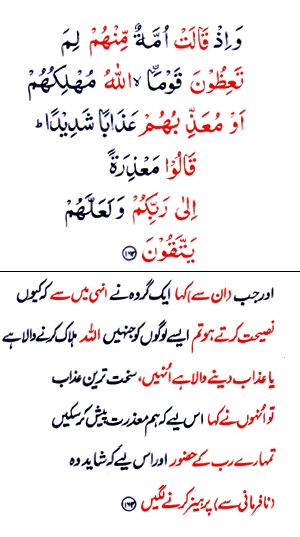 وَاِذْ قَالَتْ اُمَّةٌ مِّنْهُمْ لِمَ
تَعِظُوْنَ قَوْمَاۨ ۙ اللّٰهُ مُهْلِكُهُمْ
اَوْ مُعَذِّبُهُمْ عَذَابًا شَدِيْدًا ؕ
قَالُوْا مَعْذِرَةً
اِلٰى رَبِّكُمْ وَلَعَلَّهُمْ
يَتَّقُوْنَ ﴿۱۶۴﴾
اور جب (ان سے) کہا ایک گروہ نے انہی میں سے کہ کیوں
نصیحت کرتے ہو تم ایسے لوگوں کو جنہیں اللہ ہلاک کرنے والا ہے
یا عذاب دینے والا ہے اُنہیں، سخت ترین عذاب
تو اُنہوں نے کہا اس لیے کہ ہم معذرت پیش کر سکیں
تمہارے رب کے حضور اور اس لیے کہ شاید وہ
(نافرمانی سے) پرہیز کرنے لگیں ﴿۱۶۴﴾